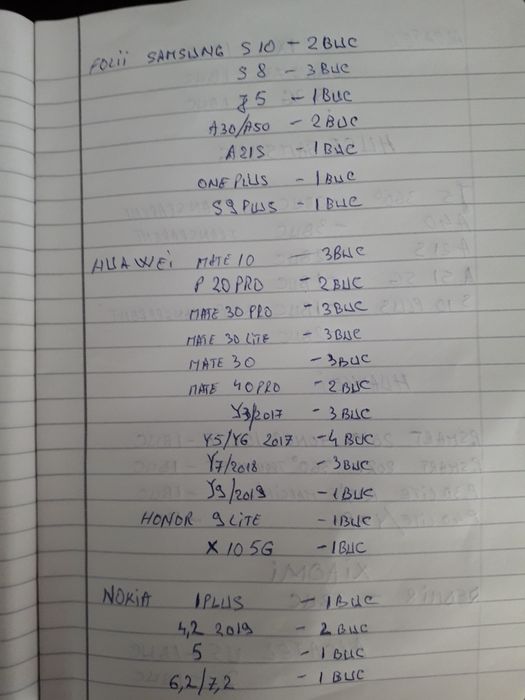 FOLII SAMSUNG S 10 - 2 BUC
S 8 - 3 BUC
J 5 - 1 BUC
A30/A50 - 2 BUC
A21S - 1 BUC
ONE PLUS - 1 BUC
S9 PLUS - 1 BUC
HUAWEI MATE 10 - 3BUC
P 20 PRO - 2 BUC
MATE 30 PRO - 3BUC
MATE 30 LITE - 3BUC
MATE 30 - 3BUC
MATE 40 PRO - 2 BUC
Y3/2017 - 3 BUC
Y5/Y6 2017 - 4 BUC
Y7/2018 - 3BUC
Y9/2019 - 1BUC
HONOR 9 LITE - 1BUC
X 10 5G - 1BUC
NOKIA 1 PLUS - 1BUC
4,2 2019 - 2 BUC
5 - 1 BUC
6,2/7,2 - 1 BUC